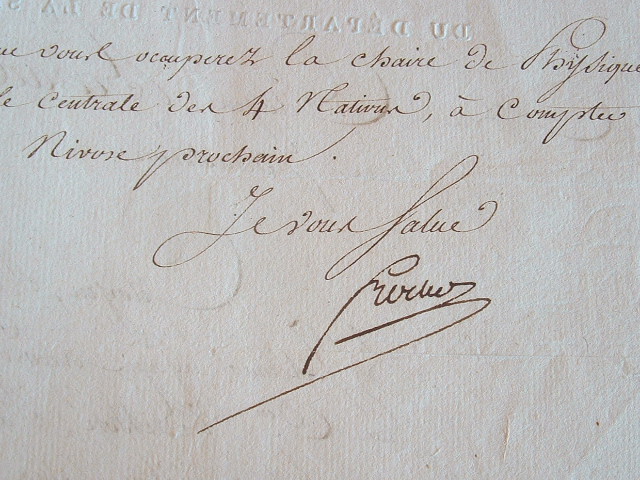 DU DÉPARTEMENT DE LA S
ue vous occuperez la chaire de Physique
le Centrale des 4 Nations, à Compter
Nivose prochain.
Je vous Salue